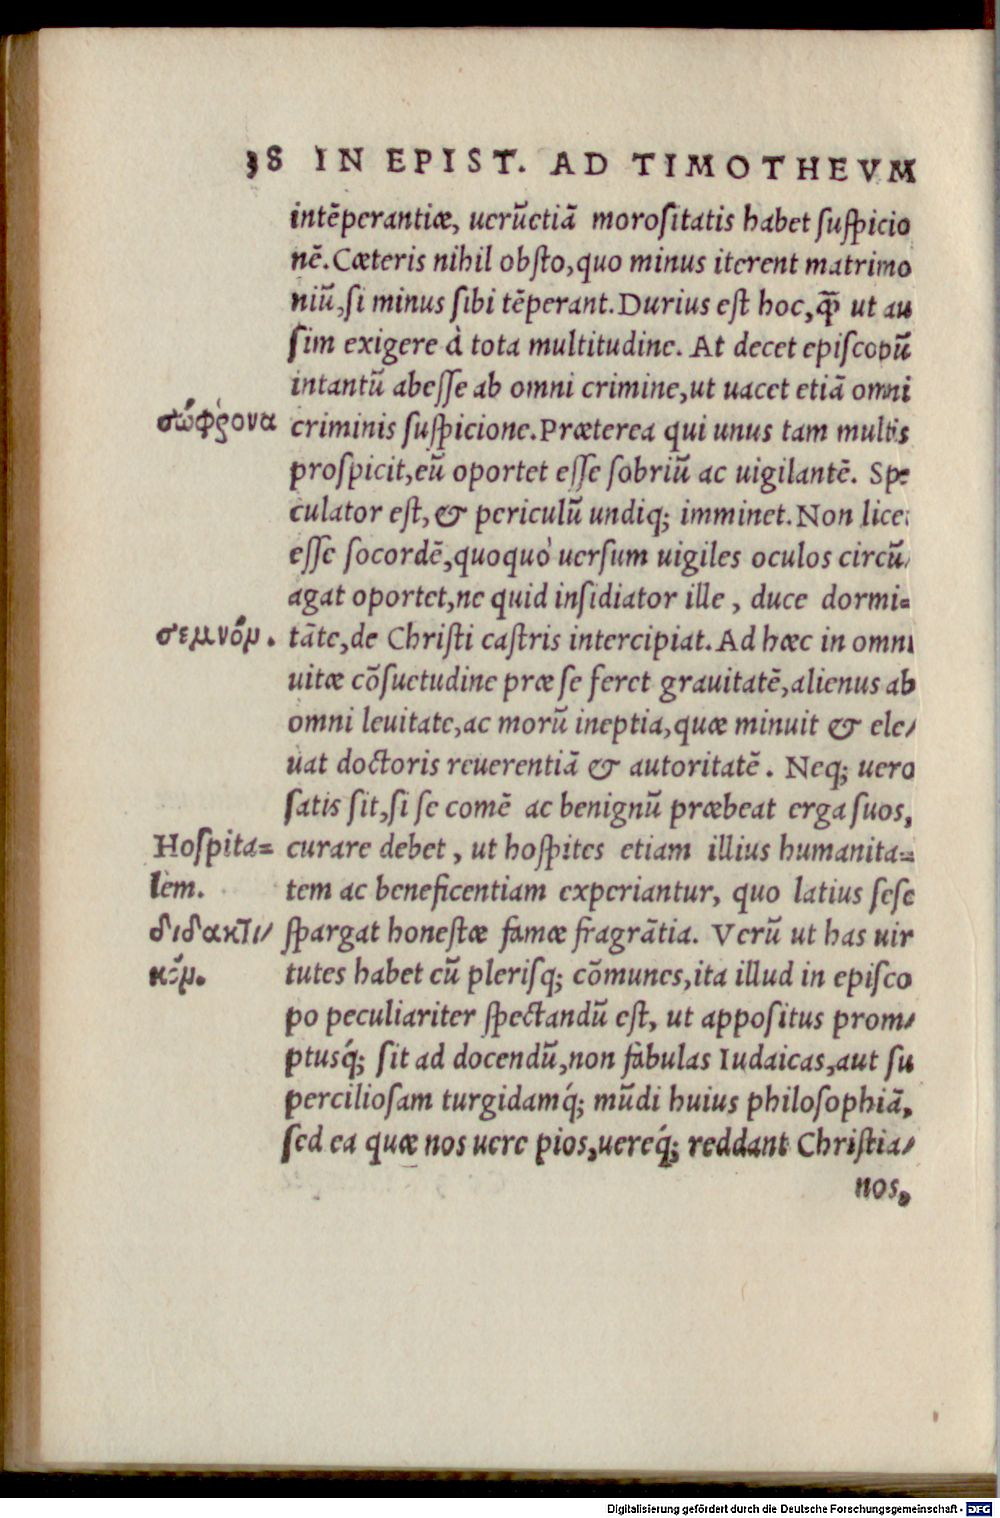 38 IN EPIST. AD TIMOTHEVM
intẽperantiæ, uerũetiã morositatis habet suspicio
nẽ. Cæteris nihil obsto, quo minus iterent matrimo
niũ, si minus sibi tẽperant. Durius est hoc, q̃ ut au
sim exigere à tota multitudine. At decet episcopũ
intantũ abesse ab omni crimine, ut uacet etiã omni
σώφρονα
criminis suspicione. Præterea qui unus tam multis
prospicit, eũ oportet esse sobriũ ac uigilantẽ. Spe
culator est, & periculũ undiq; imminet. Non licet
esse socordẽ, quoquò uersum uigiles oculos circũ/
agat oportet, ne quid insidiator ille, duce dormi=
σεμνόν.
tãte, de Christi castris intercipiat. Ad hæc in omni
uitæ cõsuetudine præ se feret grauitatẽ, alienus ab
omni leuitate, ac morũ ineptia, quæ minuit & ele/
uat doctoris reuerentiã & autoritatẽ. Neq; uero
satis sit, si se comẽ ac benignũ præbeat erga suos,
Hospita=
lem.
curare debet, ut hospites etiam illius humanita=
tem ac beneficentiam experiantur, quo latius sese
διδακτι/
κόν.
spargat honestæ famæ fragrãtia. Verũ ut has uir
tutes habet cũ plerisq; cõmunes, ita illud in episco
po peculiariter spectandũ est, ut appositus prom/
ptusq́; sit ad docendũ, non fabulas Iudaicas, aut su
perciliosam turgidamq́; mũdi huius philosophiã,
sed ea quæ nos uere pios, uereq́; reddant Christia/
nos,
Digitalisierung gefördert durch die Deutsche Forschungsgemeinschaft - DFG